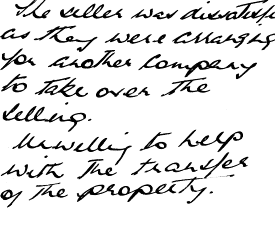 The seller was dissatisf
as they were arranging
for another company
to take over the
selling.
Unwilling to help
with the transfer
of the property.